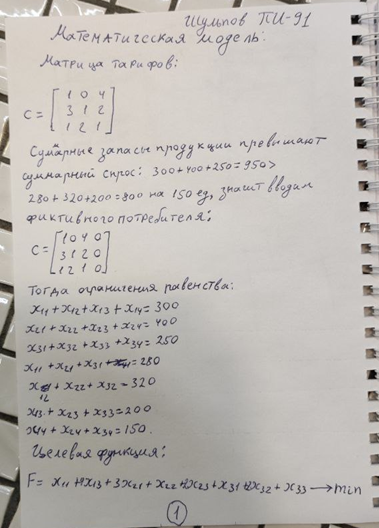 Шульпов ПИ-91
Математическая модель:
Матрица тарифов:
C = [1 0 4
3 1 2
1 2 1]
Сумарные запасы продукции превышают
суммарный спрос: 300+400+250=950>
280+320+200=800 на 150 ед, значит вводим
фиктивного потребителя:
C = [1 0 4 0
3 1 2 0
1 2 1 0]
Тогда ограничения равенства:
x11+x12+x13+x14=300
x21+x22+x23+x24=400
x31+x32+x33+x34=250
x11+x21+x31=280
x12+x22+x32=320
x13+x23+x33=200
x14+x24+x34=150.
Целевая функция:
F= x11+4x13+3x21+x22+2x23+x31+2x32+x33→min
1